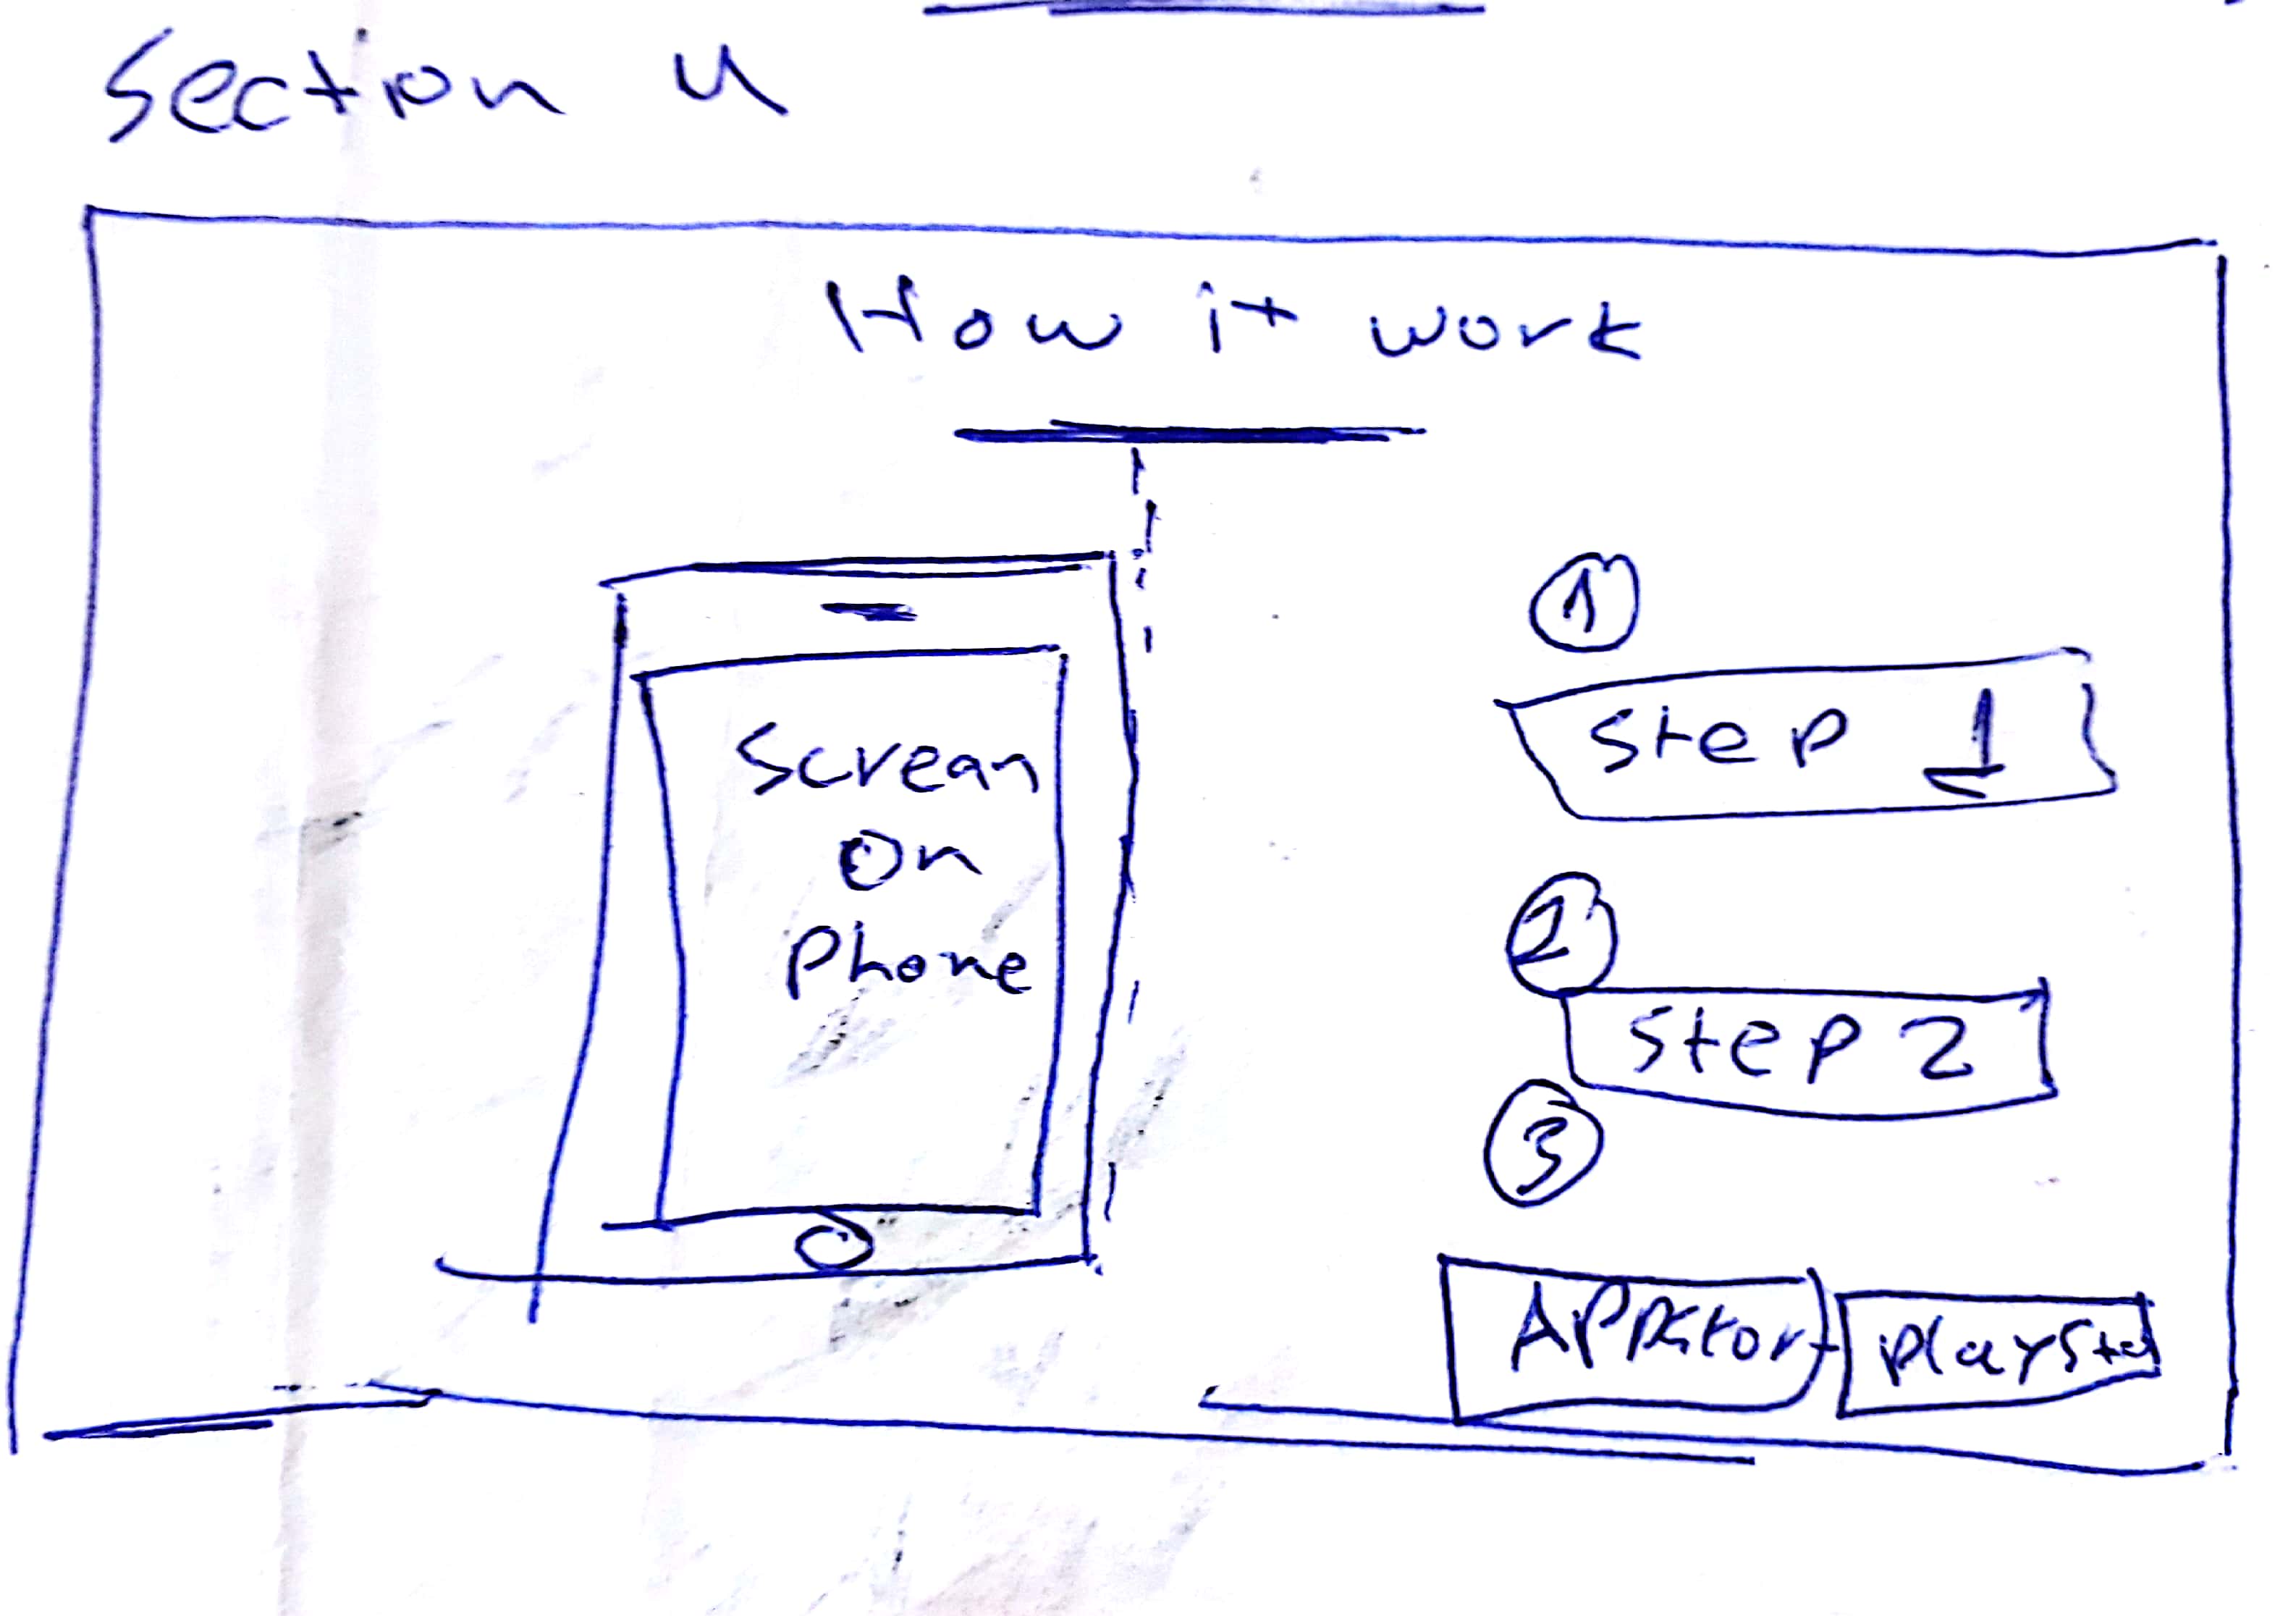 Section 4
How it work
Screan
on
Phone
1
Step 1
2
Step 2
3
APPstor
playsto